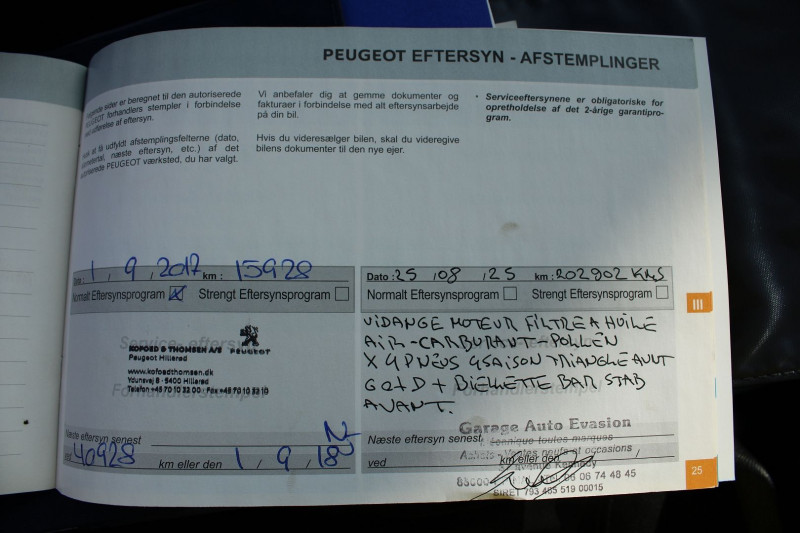 PEUGEOT EFTERSYN - AFSTEMPLINGER
sider er beregnet til den autoriserede
PEUGEOT forhandlers stempler i forbindelse
med udførelse af eftersyn.
få udfyldt afstemplingsfelterne (dato,
næste eftersyn, etc.) af det
autoriserede PEUGEOT værksted, du har valgt.
Vi anbefaler dig at gemme dokumenter og
fakturaer i forbindelse med alt eftersynsarbejde
på din bil.
Hvis du videresælger bilen, skal du videregive
bilens dokumenter til den nye ejer.
• Serviceeftersynene er obligatoriske for
opretholdelse af det 2-årige garantipro-
gram.
Dato : 1 , 9 , 2017 km : 15928
Normalt Eftersynsprogram Strengt Eftersynsprogram
Service- eftersyn
KOFOED & THOMSEN A/S PEUGEOT
Peugeot Hillerød
www.kofoedthomsen.dk
Ydunsvej 8 - 3400 Hillerød
Telefon +45 70 10 32 00 · Fax +45 70 10 32 10
Forhandlerstempel
Næste eftersyn senest
ved 40928 km eller den 1 / 9 / 18
Dato : 25 , 08 , 25 km : 202902 KMS
Normalt Eftersynsprogram Strengt Eftersynsprogram
VIDANGE MOTEUR FILTRE A HUILE
AIR - CARBURANT - POLLEN
X 4 PNEUS 4 SAISON + TRIANGLE AVNT
G D + BIELLETTE BAR STAB
AVANT.
Garage Auto Evasion
Næste eftersyn senest
toutes marques
Achats - Ventes neufs et occasions
ved km eller den
Kennedy
06 74 48 45
SIRET 793 465 519 00015
III
25